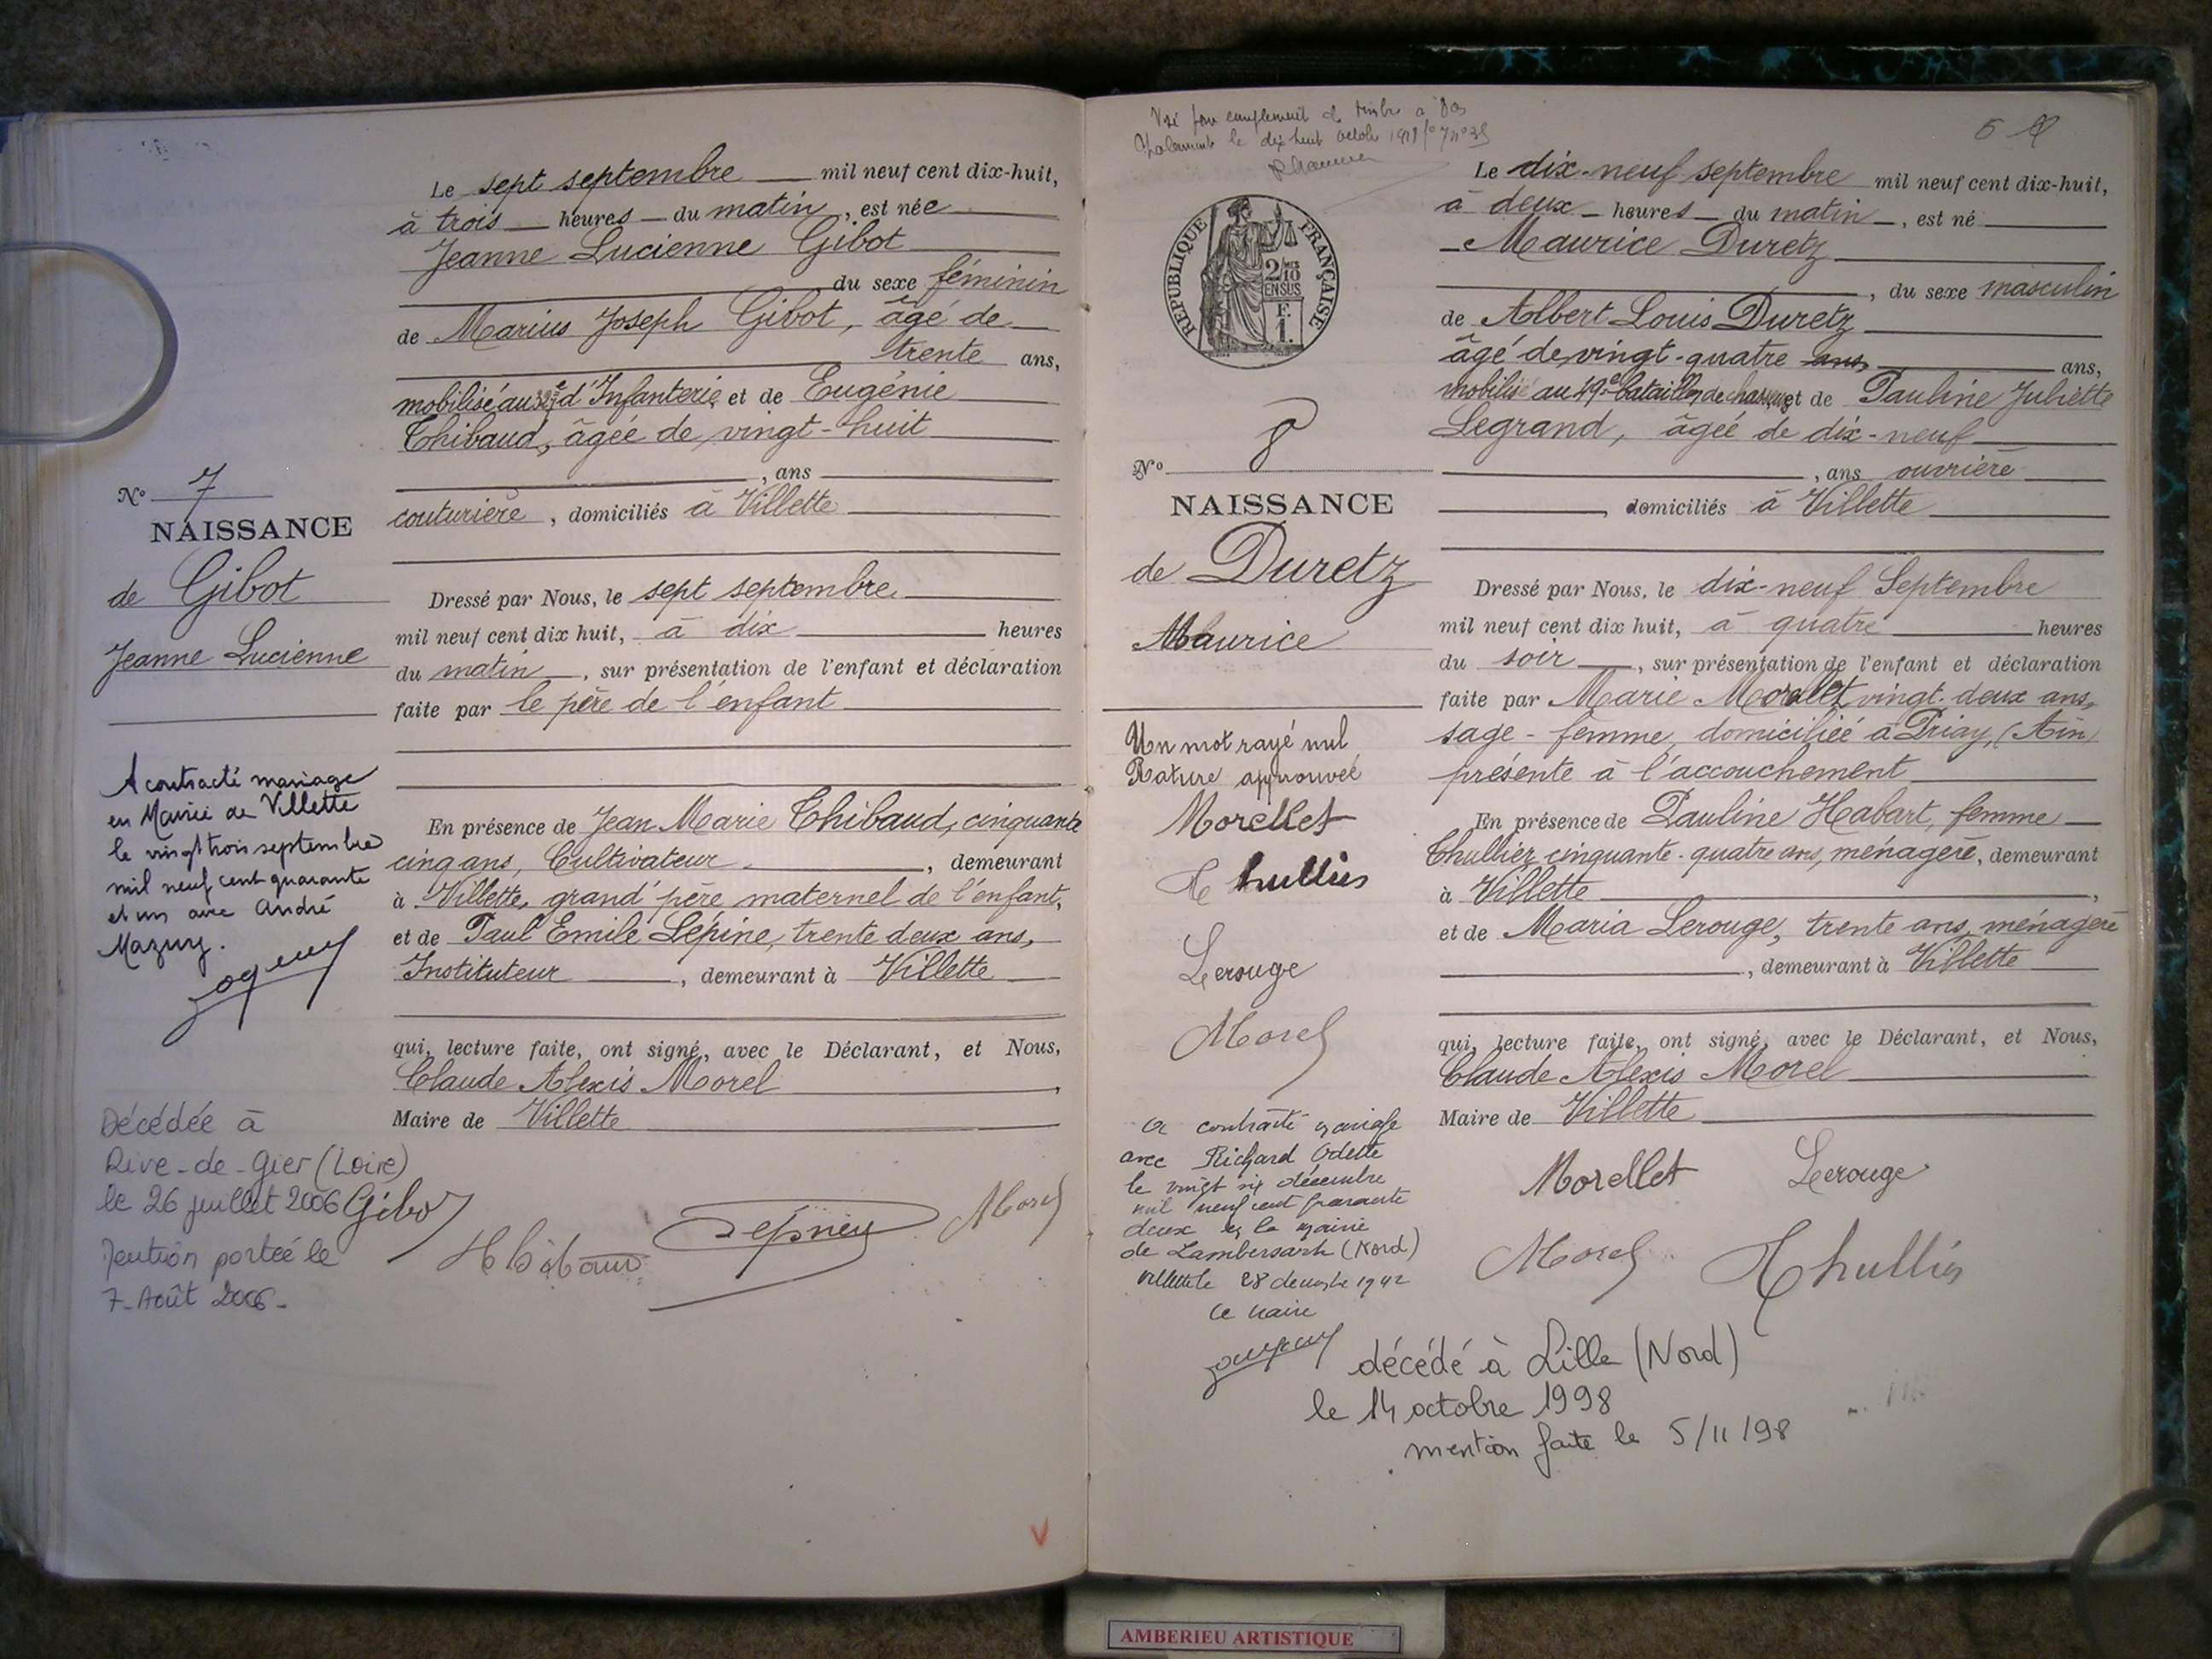 Le sept septembre mil neuf cent dix-huit,
à trois heures du matin, est née
Jeanne Lucienne Gibot
du sexe féminin
de Marius Joseph Gibot, âgé de
trente ans,
mobilisé au d'Infanterie, et de Eugénie
Thibaud, âgée de vingt-huit
, ans
couturière, domiciliés à Villette
N° 7
NAISSANCE
de Gibot
Jeanne Lucienne
Dressé par Nous, le sept septembre
mil neuf cent dix huit, à dix heures
du matin, sur présentation de l'enfant et déclaration
faite par le père de l'enfant
En présence de Jean Marie Thibaud, cinquante
cinq ans, Cultivateur, demeurant
à Villette, grand'père maternel de l'enfant,
et de Paul Emile Lépine, trente deux ans,
Instituteur, demeurant à Villette
qui, lecture faite, ont signé, avec le Déclarant, et Nous,
Claude Alexis Morel,
Maire de Villette
A contracté mariage
en Mairie de Villette
le vingt trois septembre
mil neuf cent quarante
et un avec André
Mazuy.
Décédée à
Rive-de-Gier (Loire)
le 26 juillet 2006
Mention portée le
7-Août 2006-
Gibot
Thibaud
Morel
V
5
RÉPUBLIQUE FRANÇAISE
2/10
EN SUS
F.
1.
Le dix-neuf septembre mil neuf cent dix-huit,
à deux heures du matin, est né
Maurice Duretz
, du sexe masculin
de Albert Louis Duretz
âgé de vingt-quatre ans ans,
mobilisé au 49e bataillon de chasseurs et de Pauline Juliette
Legrand, âgée de dix-neuf
, ans ouvrière
, domiciliés à Villette
N° 8
NAISSANCE
de Duretz
Maurice
Dressé par Nous, le dix-neuf Septembre
mil neuf cent dix huit, à quatre heures
du soir, sur présentation de l'enfant et déclaration
faite par Marie Morellet, vingt-deux ans,
sage-femme, domiciliée à Priay, (Ain)
présente à l'accouchement
En présence de Pauline Habart, femme
Thullier, cinquante-quatre ans, ménagère, demeurant
à Villette,
et de Maria Lerouge, trente ans, ménagère
, demeurant à Villette
qui, lecture faite, ont signé, avec le Déclarant, et Nous,
Claude Alexis Morel
Maire de Villette
Un mot rayé nul
Rature approuvée
Morellet
Thullier
Lerouge
Morel
a contracté mariage
avec Richard Odette
le vingt six décembre
mil neuf cent quarante
deux en la mairie
de Lambersart (Nord)
Villette le 28 décembre 1942
Le maire
Morellet Lerouge
Morel Thullier
décédé à Lille (Nord)
le 14 octobre 1998
mention faite le 5/11/98
AMBERIEU ARTISTIQUE